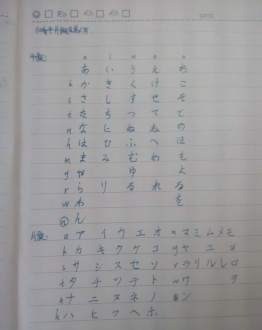 DATE
平假:
a i u e o
あ い う え お
k か き く け こ
s さ し す せ そ
t た ち つ て と
n な に ぬ ね の
h は ひ ふ へ ほ
m ま み む め も
y や ゆ よ
r ら り る れ ろ
w わ を
n ん
片假: a ア イ ウ エ オ m マ ミ ム メ モ
k カ キ ク ケ コ y ヤ ユ ヨ
s サ シ ス セ ソ r ラ リ ル レ ロ
t タ チ ツ テ ト w ワ ヲ
n ナ ニ ヌ ネ ノ n ン
h ハ ヒ フ ヘ ホ